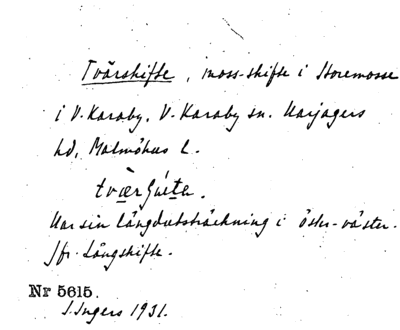 Tvärskifte, moss-skifte i Storemosse
i V. Karaby, V. Karaby sn. Harjagers
hd, Malmöhus l.
Har sin längdutsträckning i öster-väster.
Jfr. Långskifte.
Nr 5615.
I. Ingers 1931.